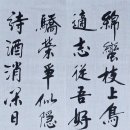 綿蠻枝上鳥
適志從吾好
驕榮爭似隱
詩酒消日